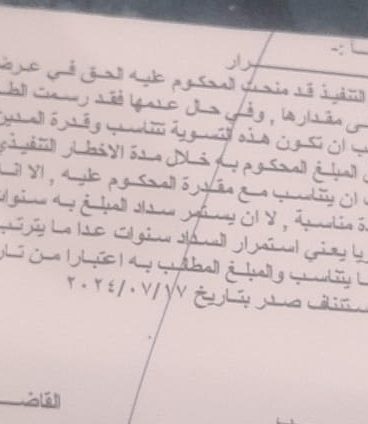 ـرار
التنفيذ قد منحت المحكوم عليه الحق في عرض
مقدارها , وفي حال عدمها فقد رسمت
ان تكون هذه التسوية تتناسب وقدرة المدين
المبلغ المحكوم به خلال مدة الاخطار التنفيذي
ان يتناسب مع مقدرة المحكوم عليه , الا
مناسبة , لا ان يستمر سداد المبلغ به سنوات
يعني استمرار السداد سنوات عدا ما يترتب
يتناسب والمبلغ المطالب به اعتبارا من
صدر بتاريخ ٢٠٢٤/٠٧/١٧
القاضـ